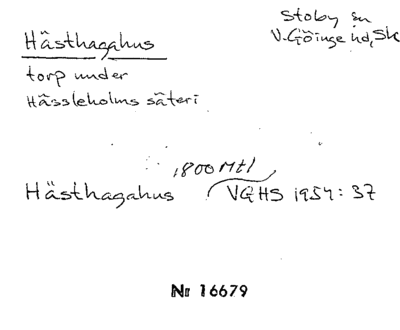 Hästhagahus
Stoby sn
V. Göinge hd, Sk
torp under
Hässleholms säteri
1800 Mtl
Hästhagahus VGHS 1954: 37
Nr 16679